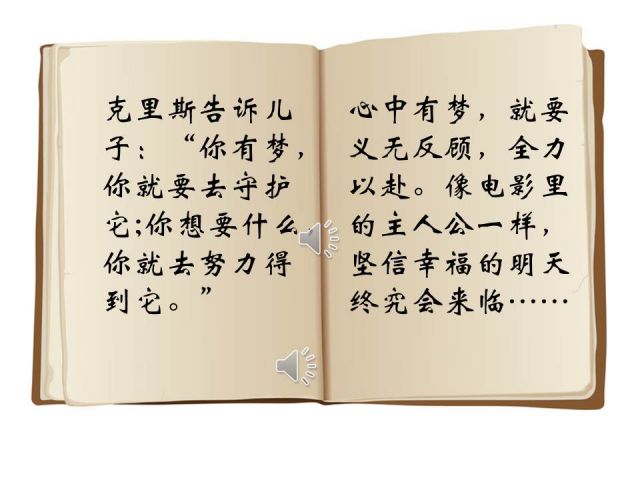 克里斯告诉儿
子：“你有梦，
你就要去守护
它;你想要什么，
你就去努力得
到它。”
心中有梦，就要
义无反顾，全力
以赴。像电影里
的主人公一样，
坚信幸福的明天
终究会来临……